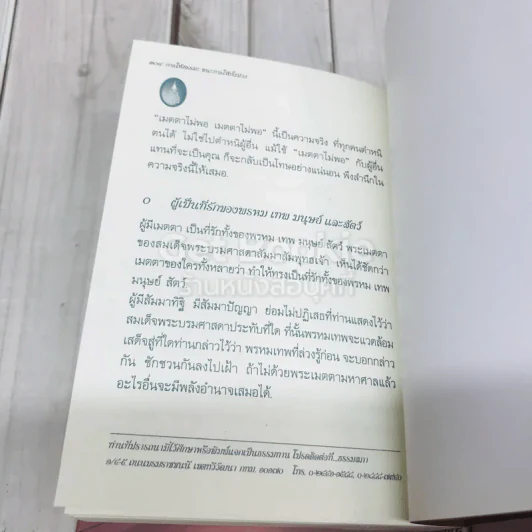 ๓๐๘ การให้ธรรมะ ชนะการให้ทั้งปวง
"เมตตาไม่พอ เมตตาไม่พอ" นี้เป็นความจริง ที่ทุกคนตำหนิ
ตนได้ ไม่ใช่ไปตำหนิผู้อื่น แม้ใช้ "เมตตาไม่พอ" กับผู้อื่น
แทนที่จะเป็นคุณ ก็จะกลับเป็นโทษอย่างแน่นอน พึงสำนึกใน
ความจริงนี้ให้เสมอ.
๐ ผู้เป็นที่รักของพรหม เทพ มนุษย์ และสัตว์
ผู้มีเมตตา เป็นที่รักทั้งของพรหม เทพ มนุษย์ สัตว์ พระเมตตา
ของสมเด็จพระบรมศาสดาสัมมาสัมพุทธเจ้า เห็นได้ชัดกว่า
เมตตาของใครทั้งหลายว่า ทำให้ทรงเป็นที่รักทั้งของพรหม เทพ
มนุษย์ สัตว์
ร้านหนังสือบุ๊คทีค
ผู้มีสัมมาทิฐิ มีสัมมาปัญญา ย่อมไม่ปฏิเสธที่ท่านแสดงไว้ว่า
สมเด็จพระบรมศาสดาประทับที่ใด ที่นั้นพรหมเทพจะแวดล้อม
เสด็จสู่ที่ใดท่านกล่าวไว้ว่า พรหมเทพที่ล่วงรู้ก่อน จะบอกกล่าว
กัน ชักชวนกันลงไปเฝ้า ถ้าไม่ด้วยพระเมตตามหาศาลแล้ว
อะไรอื่นจะมีพลังอำนาจเสมอได้.
ท่านที่ปรารถนามีไว้ศึกษาหรือพิมพ์แจกเป็นธรรมทาน โปรดติดต่อที่...ธรรมสภา
๑/๔-๕ ถนนบรมราชชนนี เขตทวีวัฒนา กทม. ๑๐๑๗๐ โทร.